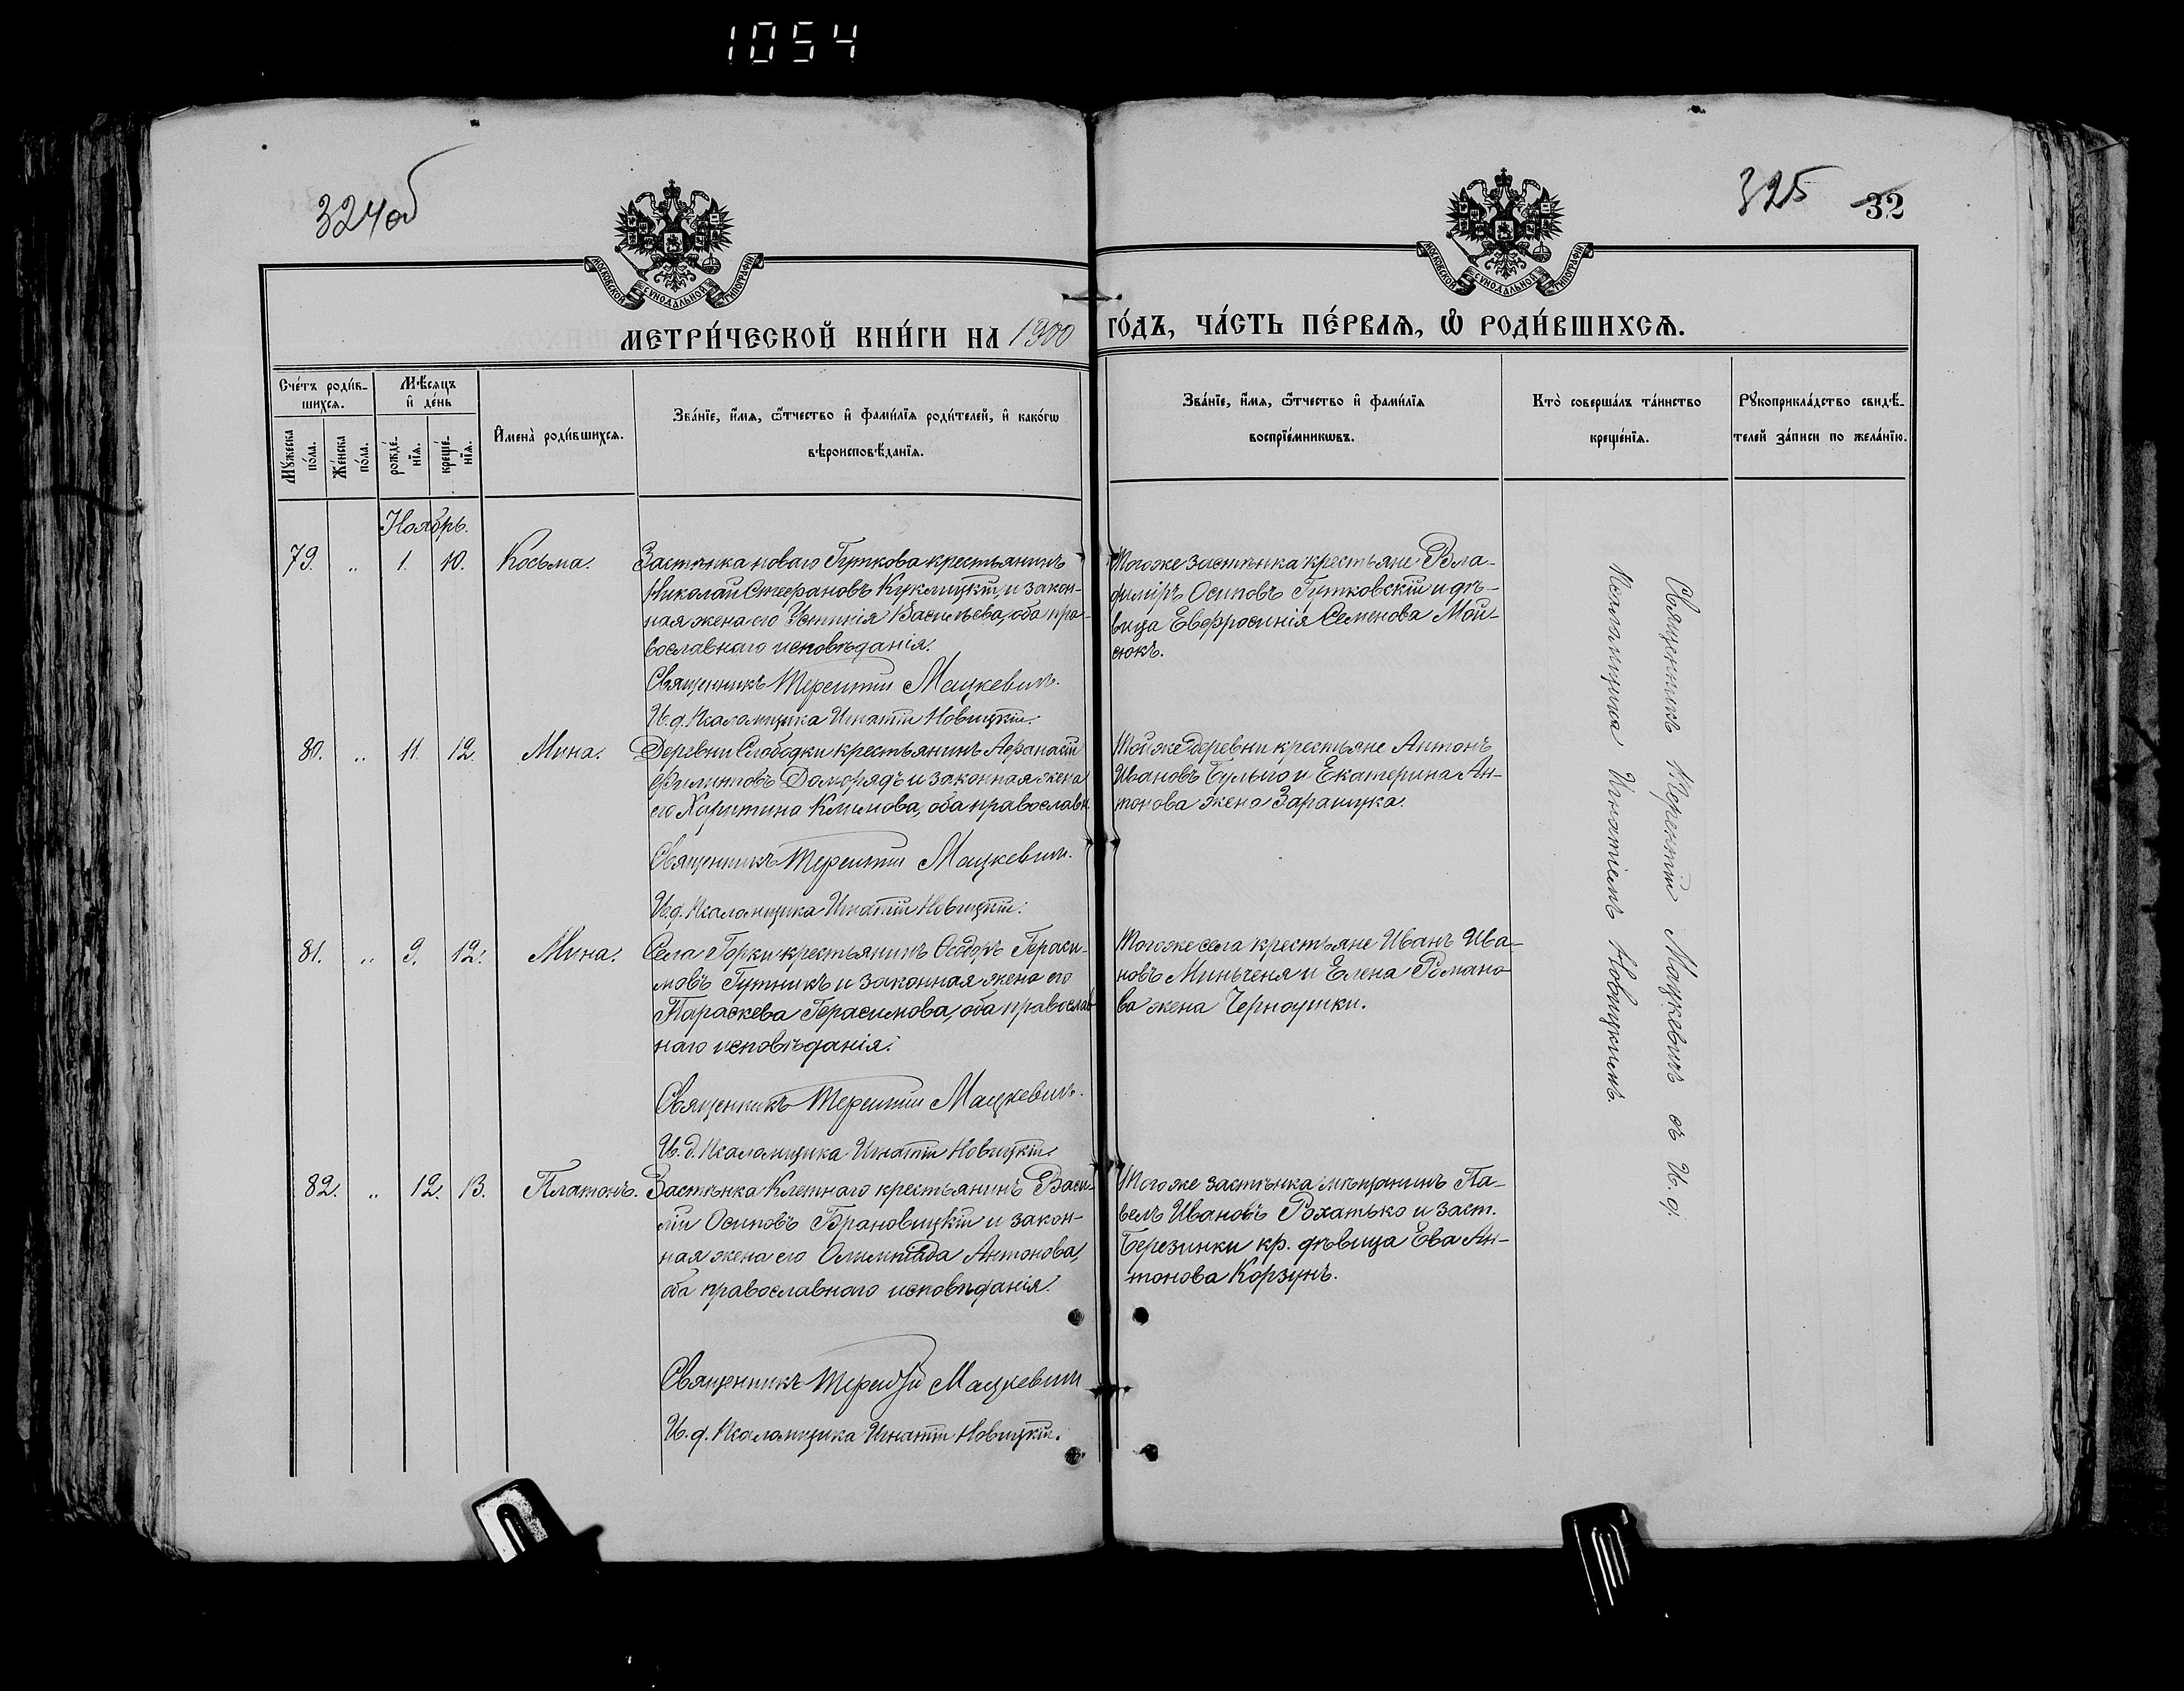 1054
324об
325 32
МОСКОВСКОЙ СѴНОДАЛЬНОЙ ТИПОГРАФІИ
МОСКОВСКОЙ СѴНОДАЛЬНОЙ ТИПОГРАФІИ
МЕТРИ́ЧЕСКОЙ КНИ́ГИ НА 1900 ГО́ДЪ, ЧА́СТЬ ПЕ́РВАѦ, Ѽ РОДИ́ВШИХСѦ.
Сче́тъ роди́в-
шихсѧ.
Мꙋ́жеска
по́ла.
Же́нска
по́ла.
Мѣ́сѧцъ
и҆ де́нь
рожде́-
нїѧ.
креще́-
нїѧ.
И҆мена̀ роди́вшихсѧ.
Зва́нїе, и҆́мѧ, ѻ҆́тчество и҆ фами́лїѧ роди́телей, и҆ како́гѡ
вѣроисповѣ́данїѧ.
Зва́нїе, и҆́мѧ, ѻ҆́тчество и҆ фами́лїѧ
воспрїе́мникѡвъ.
Кто̀ соверша́лъ та́инство
креще́нїѧ.
Рꙋкоприкла́дство свидѣ́-
телей за́писи по жела́нїю.
Ноябрь.
79. „ 1. 10. Косьма.
Застѣнка новаго Гуткова крестьянинъ
Николай Стефановъ Куклицкій, и закон-
ная жена его Устинія Васильева, оба пра-
вославнаго исповѣданія.
Священникъ Терентій Мацкевичъ.
И. д. Псаломщика Игнатій Новицкій.
Того же застѣнка крестьяне Вла-
диміръ Осиповъ Гутковскій и дѣ-
вица Евфросинія Семенова Мой-
сюкъ.
80. „ 11. 12. Мина.
Деревни Слободки крестьянинъ Афанасій
Филиповъ Доморядъ и законная жена
его Харитина Климова, оба православн.
Священникъ Терентій Мацкевичъ.
И. д. Псаломщика Игнатій Новицкій.
Той же деревни крестьяне Антонъ
Ивановъ Булыго и Екатерина Ан-
тонова жена Зараицка.
81. „ 9. 12. Мина.
Села Горки крестьянинъ Ѳеодоръ Гераси-
мовъ Гутникъ и законная жена его
Параскева Герасимова, оба православ-
наго исповѣданія.
Священникъ Терентій Мацкевичъ.
И. д. Псаломщика Игнатій Новицкій.
Того же села крестьяне Иванъ Ива-
новъ Миньченя и Елена Романо-
ва жена Черноушки.
82. „ 12. 13. Платонъ.
Застѣнка Клетнаго крестьянинъ Васи-
лій Осиповъ Брановицкій и закон-
ная жена его Олимпіада Антонова,
оба православнаго исповѣданія.
Священникъ Терентій Мацкевичъ
И. д. Псаломщика Игнатій Новицкій.
Того же застѣнка мѣщанинъ Па-
велъ Ивановъ Рохатько и заст.
Березинки кр. дѣвица Ева Ан-
тонова Корзунъ.
Священникъ Терентій Мацкевичъ съ И. д.
Псаломщика Игнатіемъ Новицкимъ.